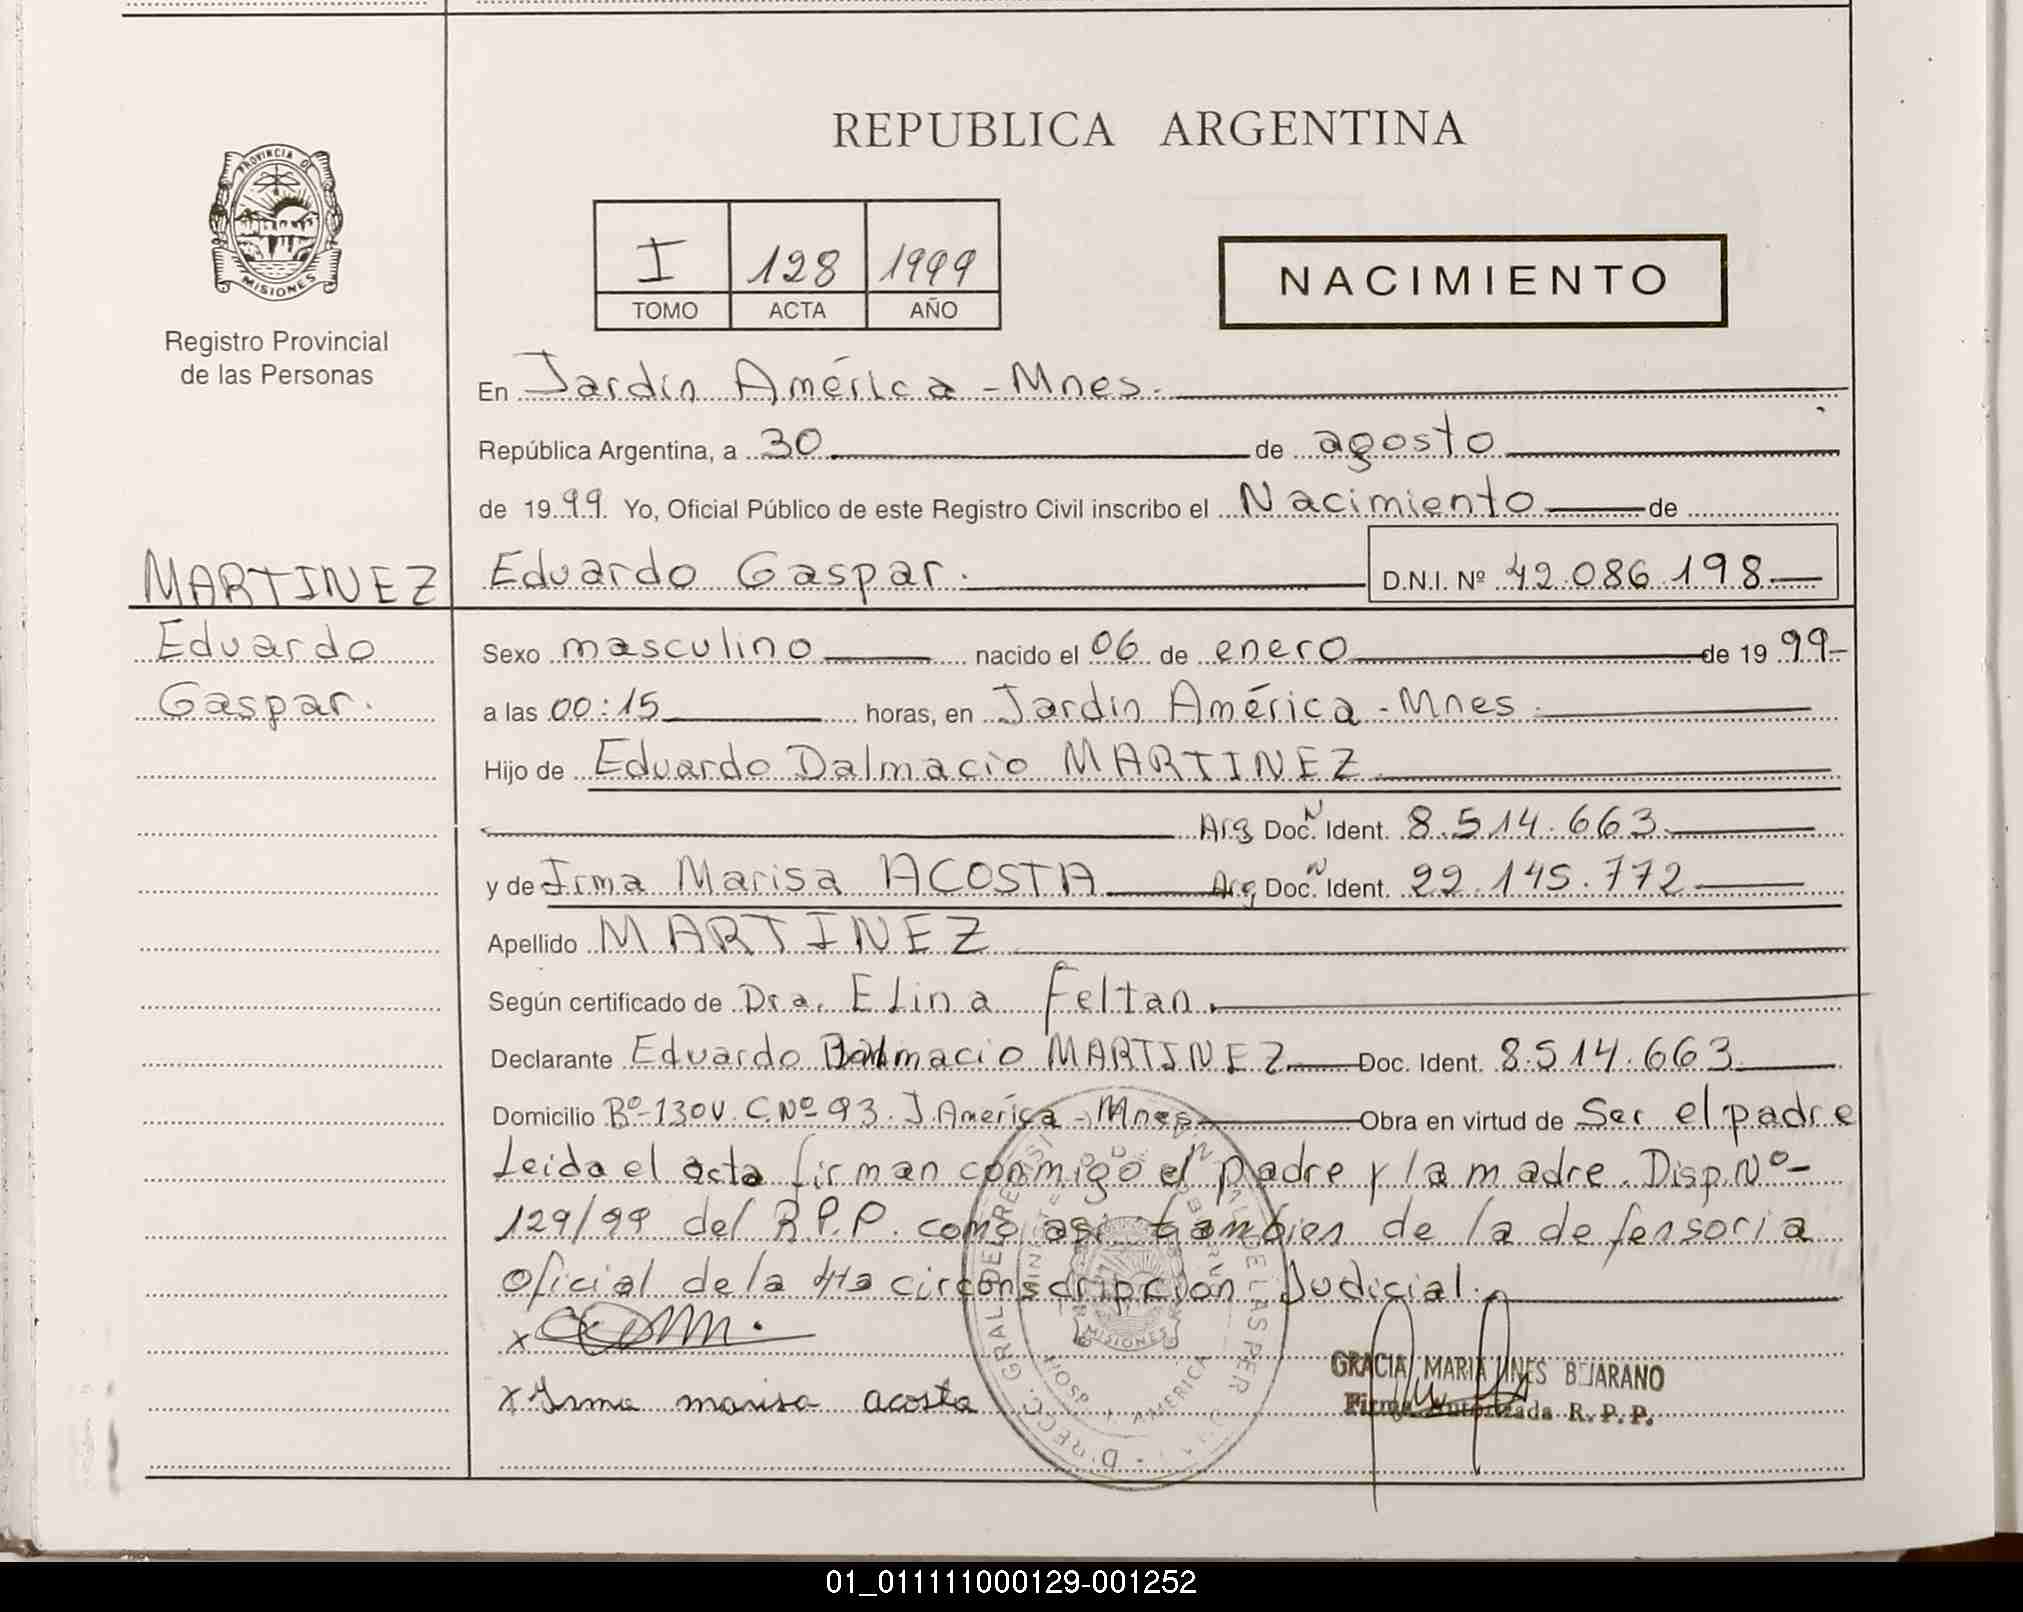 REPUBLICA ARGENTINA
PROVINCIA DE
MISIONES
Registro Provincial
de las Personas
I 128 1999
TOMO ACTA AÑO
NACIMIENTO
En Jardín América - Mnes.
República Argentina, a 30 de agosto
de 1999. Yo, Oficial Público de este Registro Civil inscribo el Nacimiento de
MARTINEZ
Eduardo
Gaspar.
Eduardo Gaspar. D.N.I. Nº 42.086.198
Sexo masculino nacido el 06 de enero de 1999-
a las 00:15 horas, en Jardin América - Mnes.
Hijo de Eduardo Dalmacio MARTINEZ
Arg Doc. N Ident. 8.514.663
y de Irma Marisa ACOSTA Arg Doc. N Ident. 22.145.772
Apellido MARTINEZ
Según certificado de Dra. Elina Feltan.
Declarante Eduardo Dalmacio MARTINEZ Doc. Ident. 8.514.663
Domicilio Bº-130V. C.Nº-93. J.América - Mnes Obra en virtud de Ser el padre
Leida el acta firman conmigo el padre y la madre. Disp. Nº-
129/99 del R.P.P. como asi tambien de la defensoria
oficial de la 4ta circonscripcion Judicial.
x
x Irma marisa acosta
GRACIA MARIA INES BEJARANO
Firma Autorizada R.P.P.
MISIONES
AMERICA
01_011111000129-001252